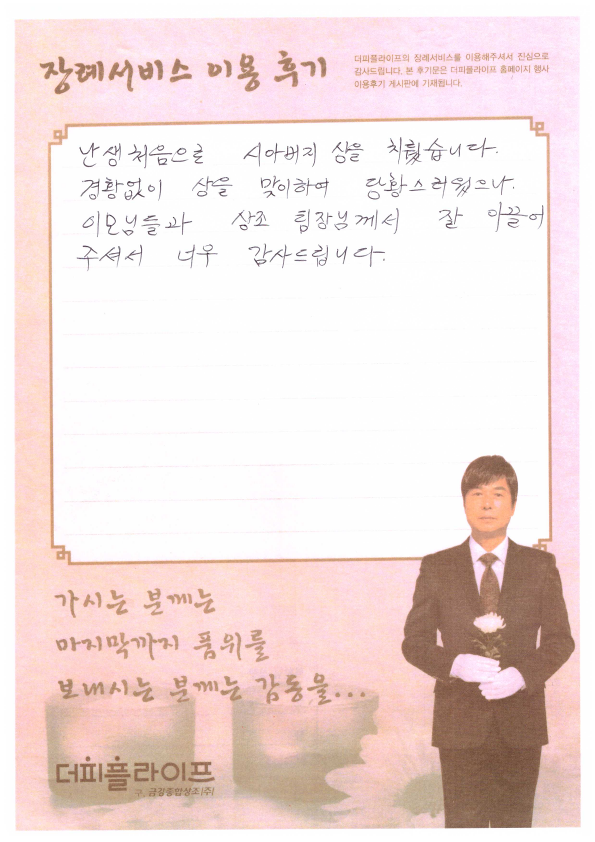 장례서비스 이용 후기
더피플라이프의 장례서비스를 이용해주셔서 진심으로
감사드립니다. 본 후기문은 더피플라이프 홈페이지 행사
이용후기 게시판에 기재됩니다.
난생처음으로 시아버지 상을 치뤘습니다.
경황없이 상을 맞이하여 당황스러웠으나
이모님들과 상조 팀장님께서 잘 이끌어
주셔서 너무 감사드립니다.
가시는 분께는
마지막까지 품위를
보내시는 분께는 감동을...
더피플라이프
구. 금강종합상조(주)